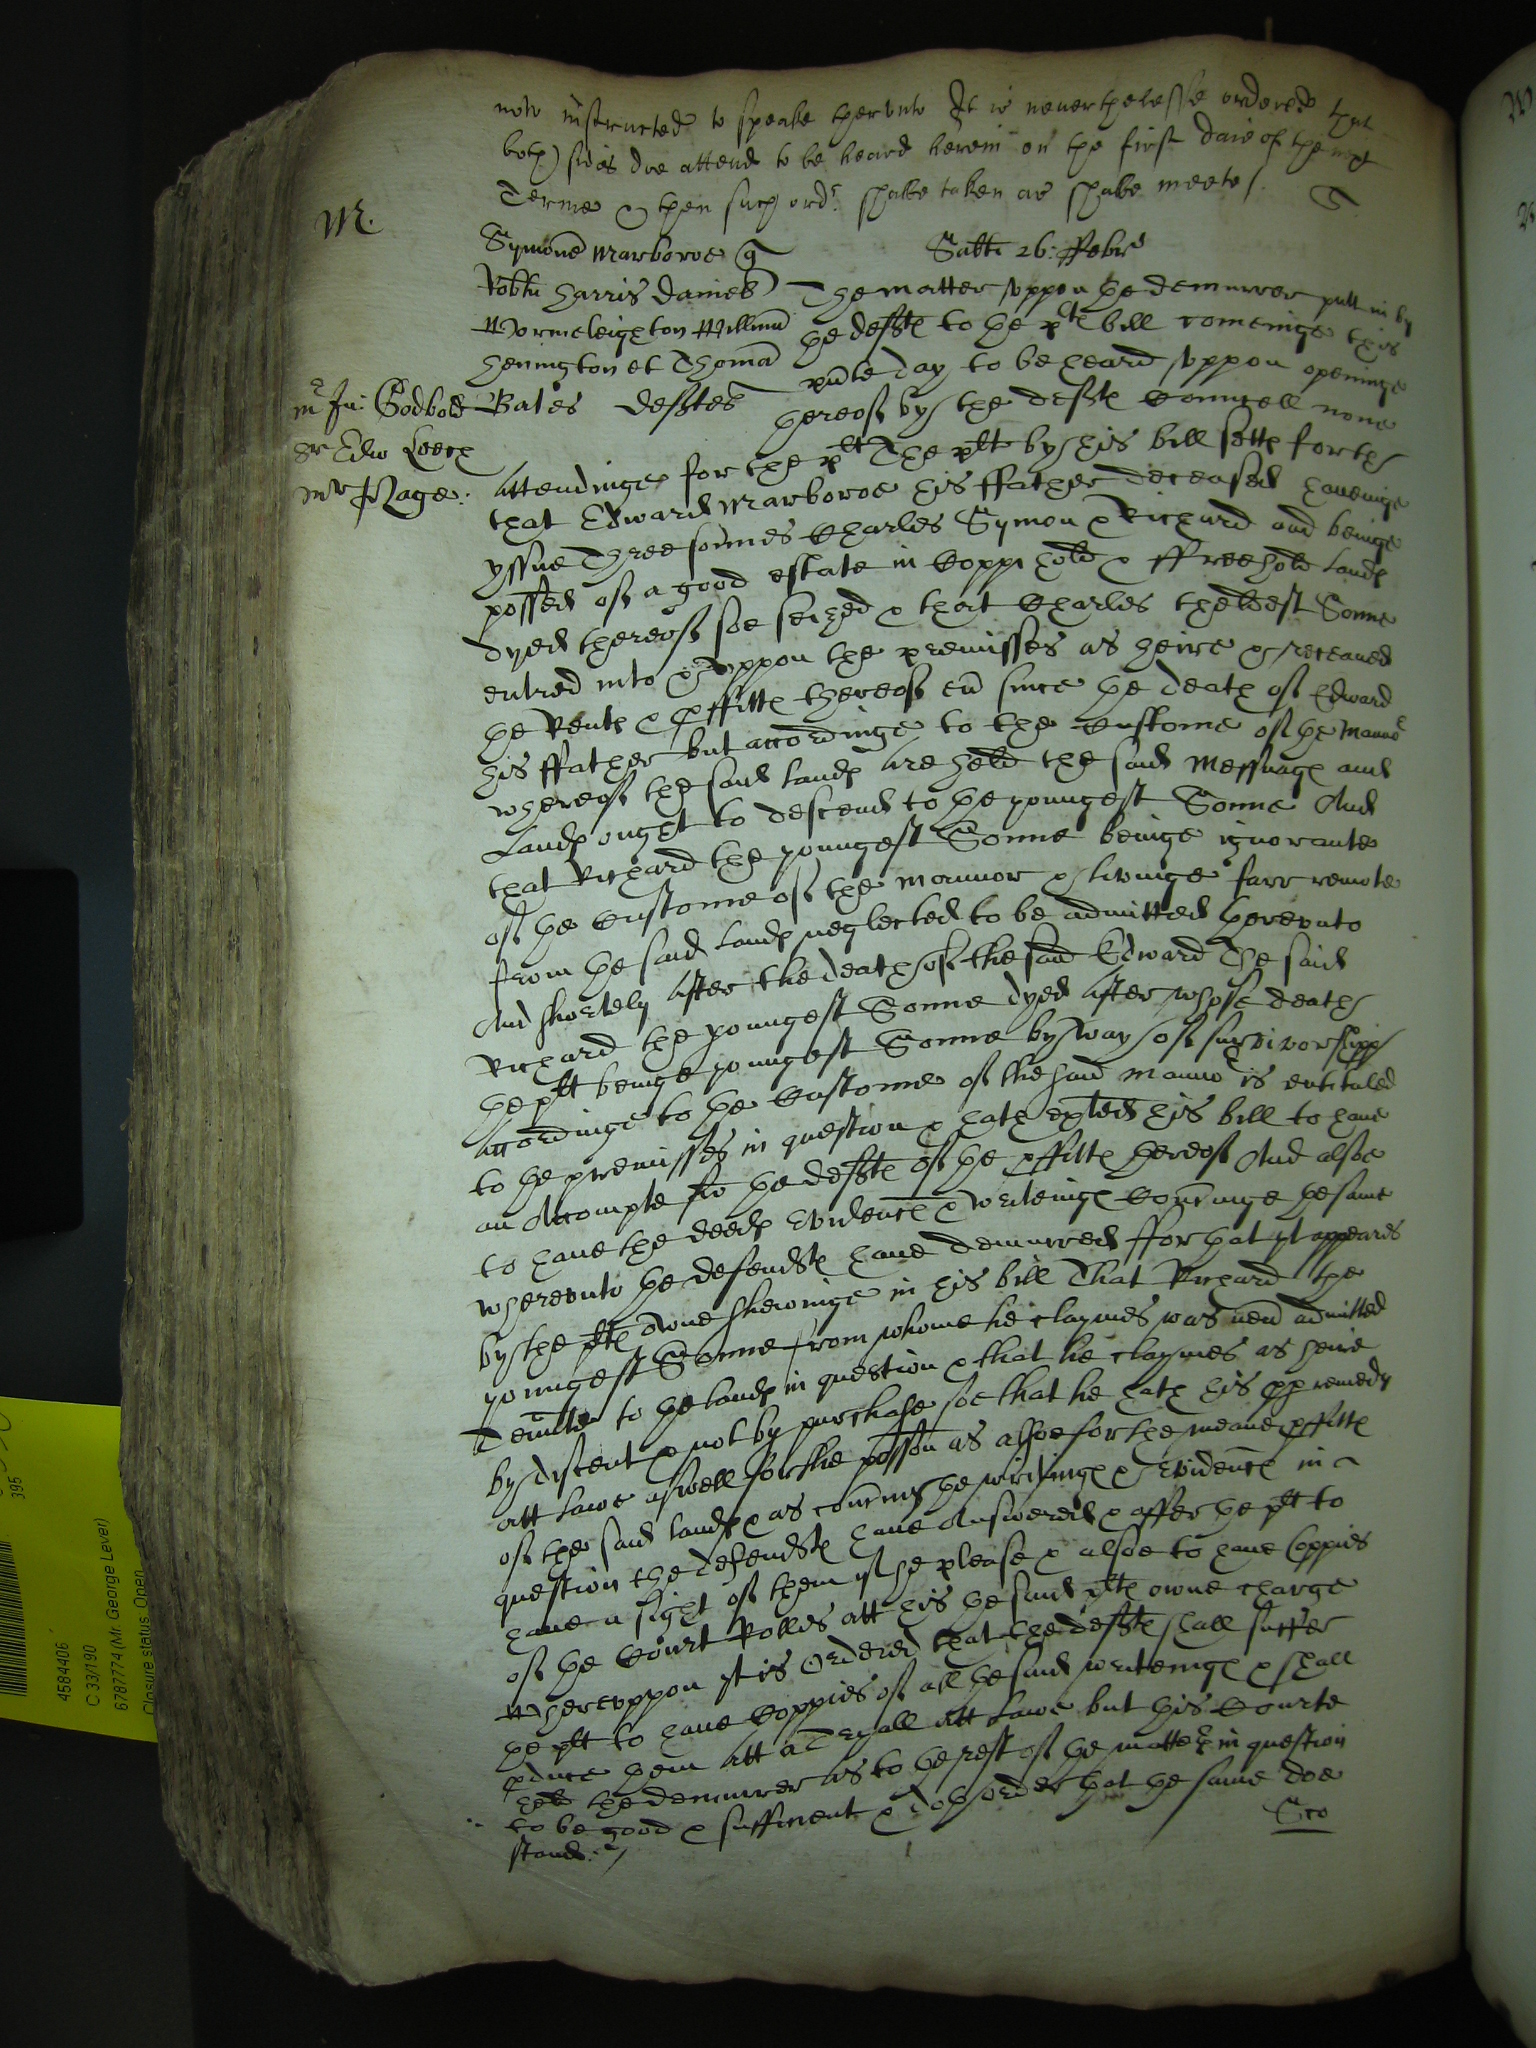 now instructed to speake therunto It is neverthelesse ordered that
both sides doe attend to be heard herein on the first daie of the next
Terme & then such ordr. shalbe taken as shalbe meete /.
M.
Symone Marboroe q
Sabti 26: ffebr
Robtu Harris Daniel
Wormeleighton Willmu
Henington et Thoma
Bates defftes
mr Jn: Godbold
Sr Edw Leech
mr Page:
The matter uppon the demurrer putt in by
the defftes to the plts bill comeinge this
pnte day to be heard uppon openinge
thereof by the defftes Councell none
attendinge for the plt The plt by his bill setts forth
that Edward Marboroe his ffather deceased haveinge
yssue Three sonnes Charles Symon & Richard and beinge
possed of a good estate in Coppihold & ffreehold lands
dyed thereof soe seized & that Charles theldest Sonne
entred into & uppon the premisses as heire & receaved
the Rents & pffitts thereof ever since the death of Edward
his ffather but accordinge to the Custome of the Mannor
whereof the said lands are held the said Messuage and
Lands ought to descend to the youngest Sonne And
that Richard the youngest Sonne beinge ignorante
of the Custome of the Mannor & livinge farr remote
from the said lands neglected to be admitted thereunto
And shortely after the death of the said Edward The said
Richard the youngest Sonne dyed after whose death
the plt beinge youngest Sonne by way of survivorshipp
accordinge to the Custome of the said Mannor is entituled
to the premisses in question & hath exhted his bill to have
an Accompte fro the defftes of the pffitts thereof And alsoe
to have the deeds evidences & writeings Concninge the same
whereunto the defendts have demurred ffor that yt appeares
by the plts owne shewinge in his bill That Richard the
youngest Sonne from whome he claymes was never admitted
Tennte to the lands in question & that he claymes as heire
by discent & not by purchase soe that he hath his pp remedy
att Lawe aswell for the possion as alsoe for the meane pffitts
of the said lands & as concninge the writings & evidences in
question the defendts have Answered & offer the plt to
have a sight of them if he please & alsoe to have Coppies
of the Court Rolles att his the said plts owne charge
Whereuppon yt is Ordered that the defftes shall suffer
the plt to have Coppies of all the said writeings & shall
pduce them att a Tryall att Lawe but this Courte
held the demurrer as to the rest of the matters in question
to be good & sufficient & doth order that the same doe
stand:/